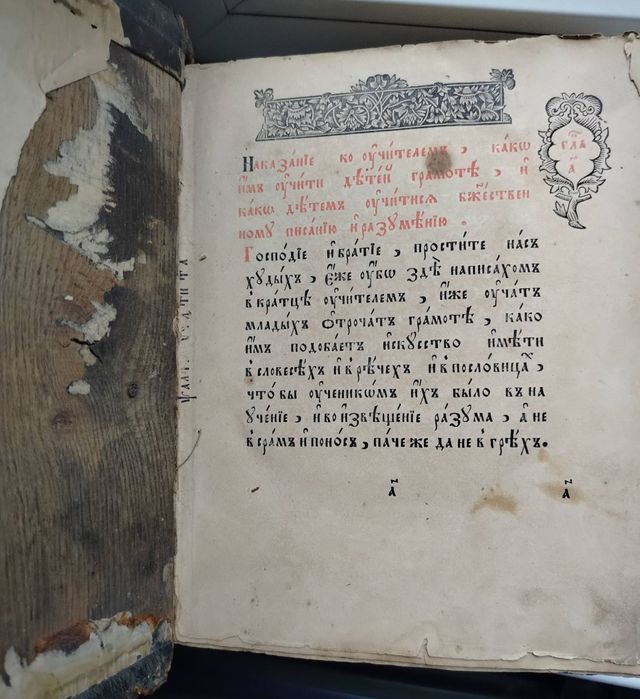 Наказа́нїе ко ᲂу҆чи́телемъ, ка́кѡ
и҆̀мъ ᲂу҆чи́ти дѣте́й гра́мотѣ, и҆
ка́кѡ дѣ́темъ ᲂу҆чи́тисѧ бж҃е́ствен
ному писа́нїю и҆ разꙋмѣ́нїю.
гла
а҃
Господі́е и҆ бра́тїе, прости́те на́съ
хꙋды́хъ, є҆́же ᲂу҆́бѡ здѣ̀ написа́хомъ
вкра́тцѣ ᲂу҆чи́телемъ, и҆́же ᲂу҆ча́тъ
млады́хъ ѻ҆троча́тъ гра́мотѣ, ка́ко
и҆̀мъ подоба́етъ и҆скꙋ́сство и҆мѣ́ти
в словесѣ́хъ и҆ в рѣ́чехъ и҆ в посло́вицахъ,
что́бы ᲂу҆ченикѡ́мъ и҆́хъ бы́ло въ на
ᲂу҆че́нїе, и҆ во и҆звѣще́нїе ра́зꙋма, а҆ не
в сра́мъ и҆ поно́съ, па́че же да не в грѣ́хъ.
а҃ а҃